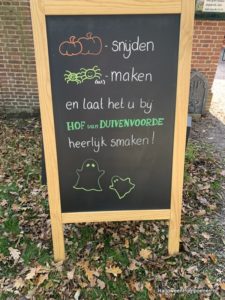 - snijden
- maken
en laat het u bij
HOF van DUIVENVOORDE
heerlijk smaken!